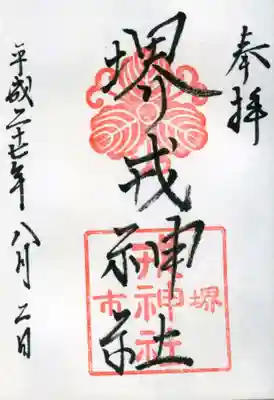 奉拝
堺戎神社
平成二十七年八月二日
堺
戎神社
市